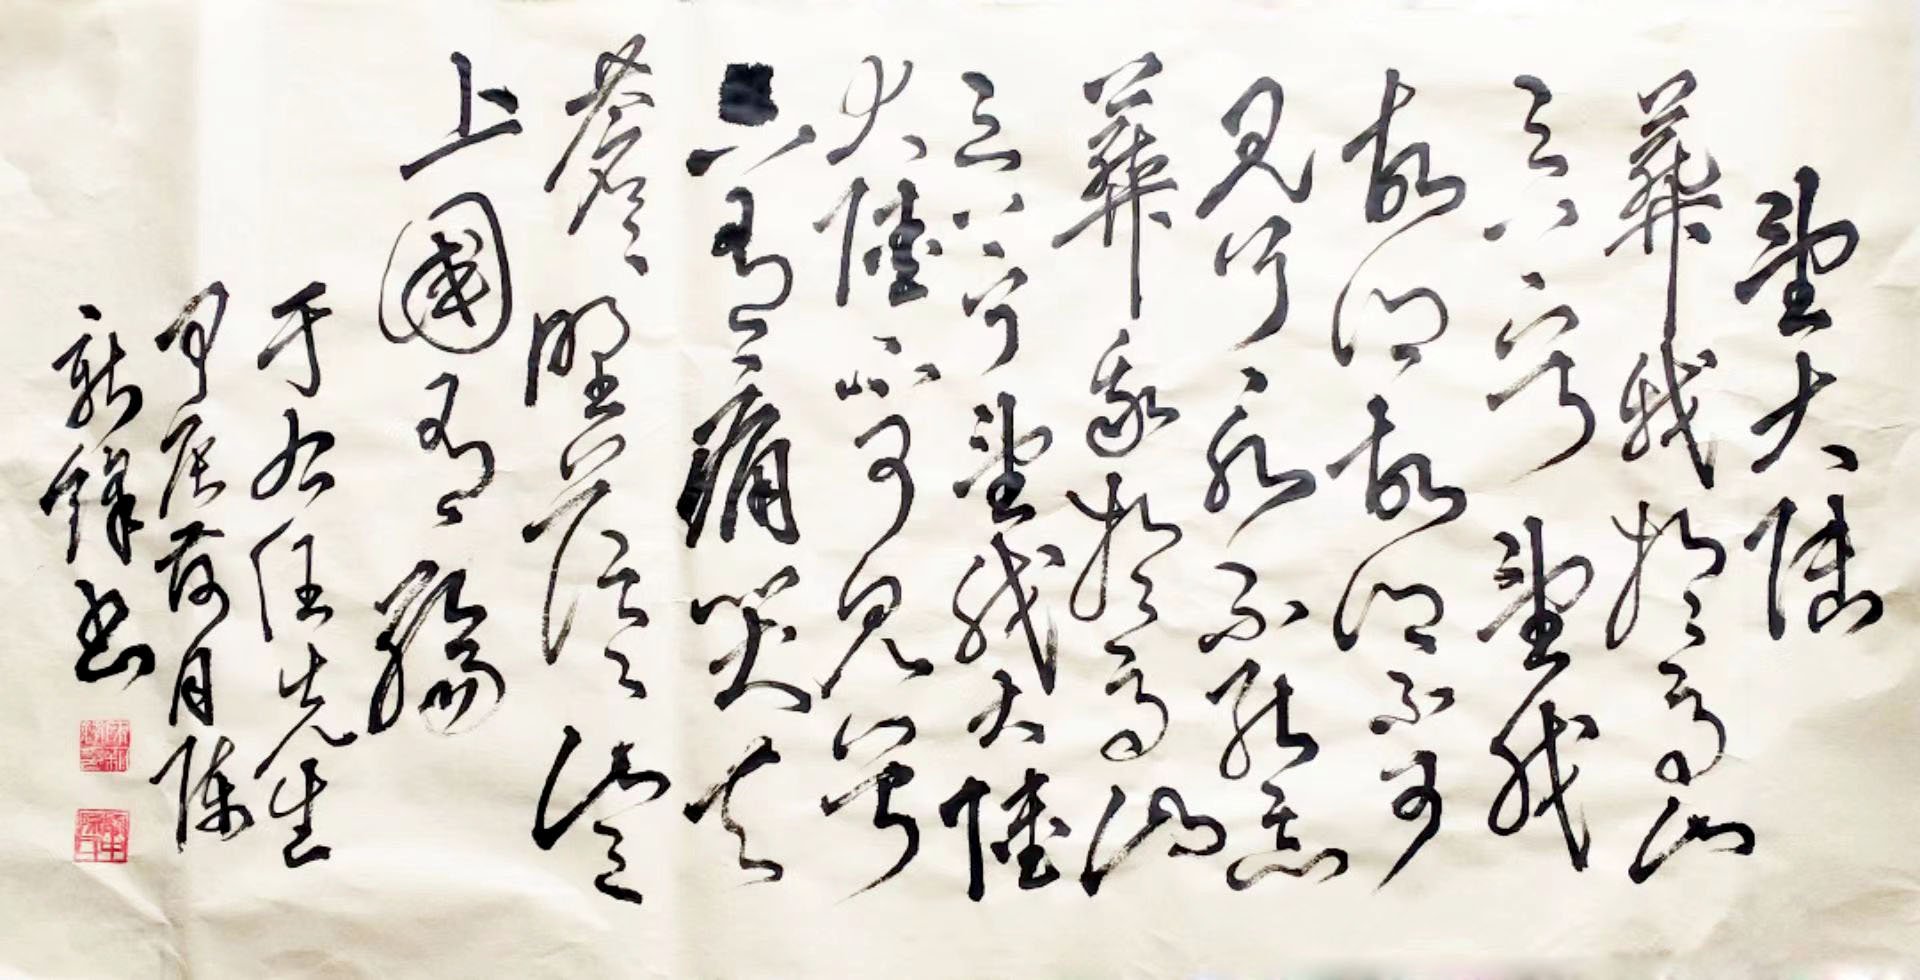 望大陆
葬我於高山
之上兮望我
故鄉故鄉不可
見兮永不能忘
葬我於高山
之上兮望我大陸
大陸不可見兮
只有痛哭天
蒼蒼野茫茫山之
上國有殤
于右任先生
甲辰荷月陈
新鋒書